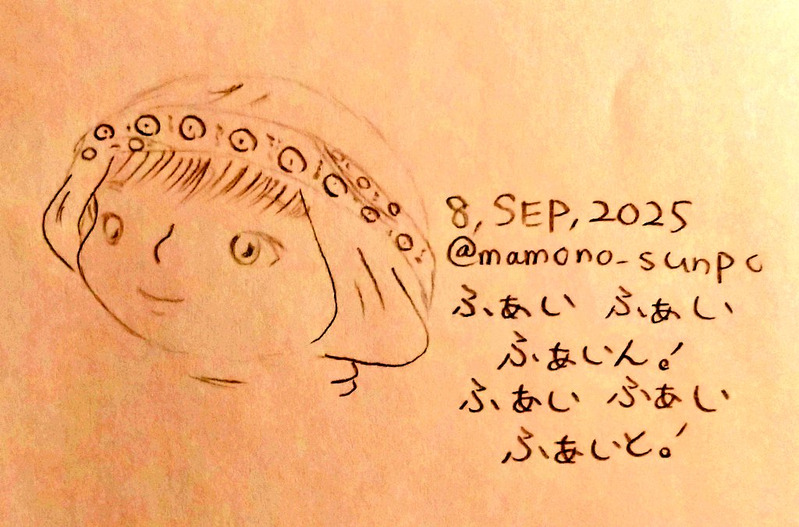 8, SEP, 2025
@mamono_sunpo
ふぁい ふぁい
ふぁいん!
ふぁい ふぁい
ふぁいと!